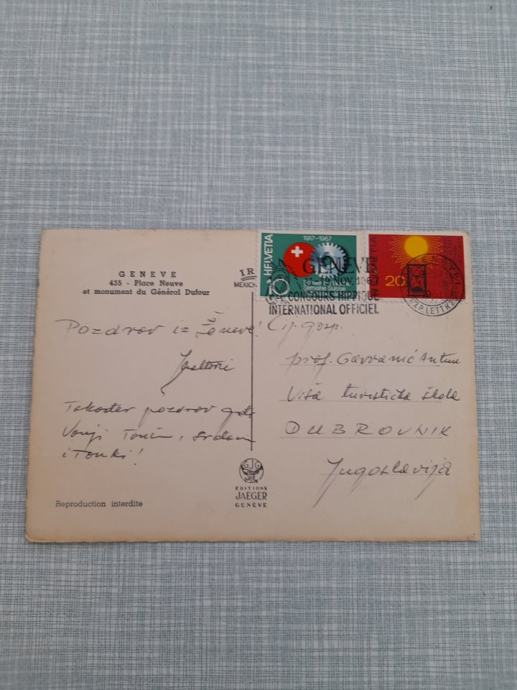 GENEVE
435 - Place Neuve
et monument du Général Dufour
1R
MEXICH
HELVETIA
1917-1967
10
20
GENEVE
NOV. 1967
CONCOURS HIPPIQUE
INTERNATIONAL OFFICIEL
Pozdrav iz Ženeve!
Također pozdrav gđo
Vanji Tonin, Srdanu
i Tonki!
Cij. gosp.
prof. Gavranić Antun
Viša turistička škola
DUBROVNIK
Jugoslavija
EDITIONS
JAEGER
GENEVE
Reproduction interdite